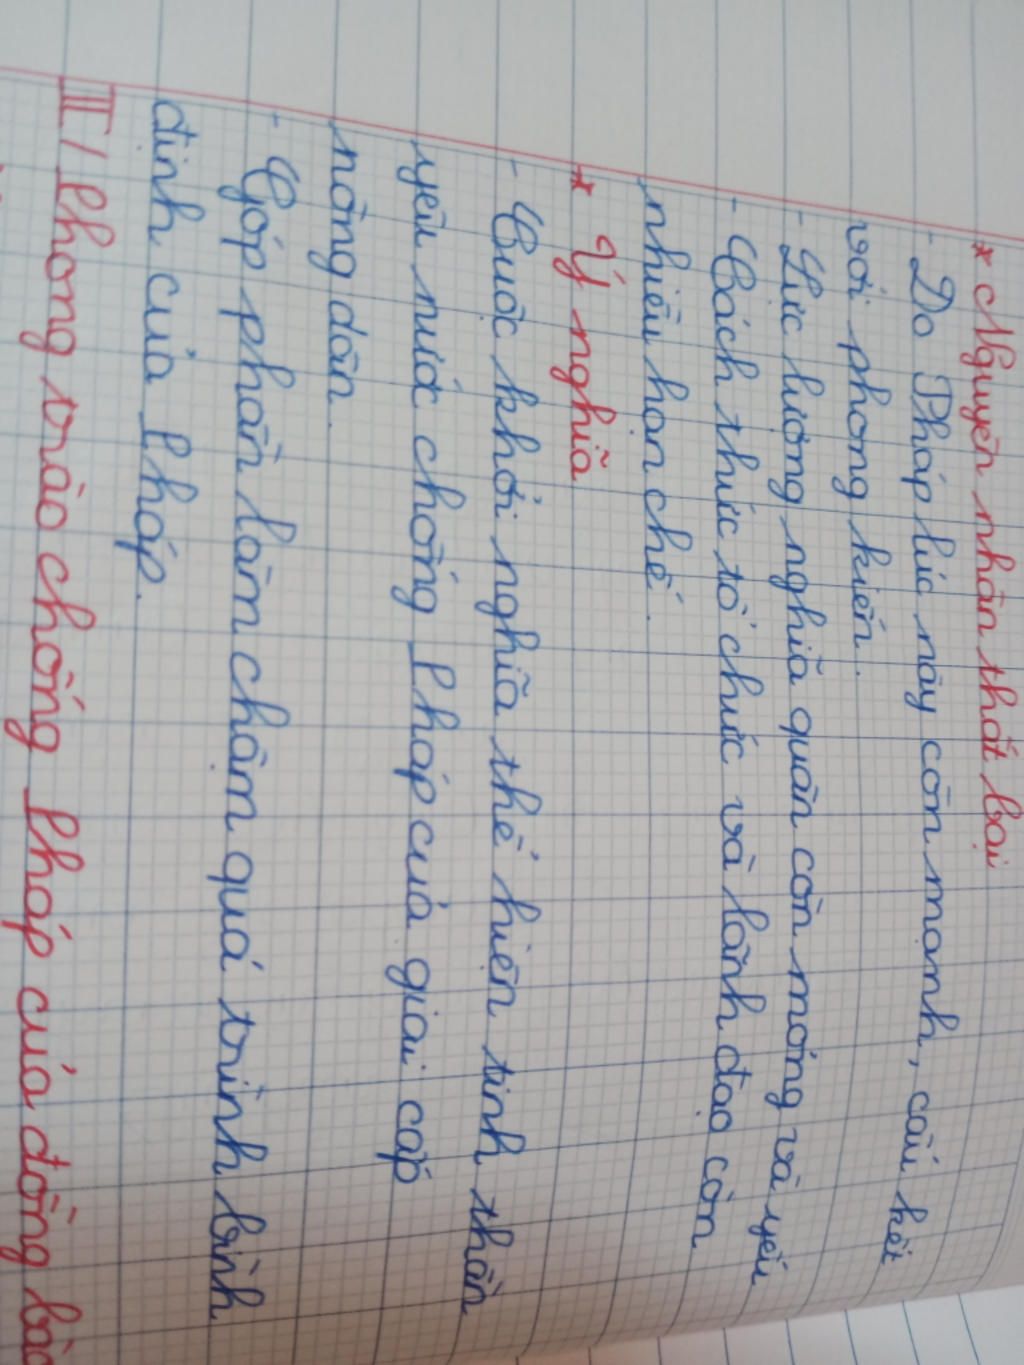 * Nguyên nhân thất bại
- Do Pháp lúc này còn mạnh, cấu kết
với phong kiến.
- Lực lượng nghĩa quân còn mỏng và yếu
- Cách thức tổ chức và lãnh đạo còn
nhiều hạn chế.
* Ý nghĩa
- Cuộc khởi nghĩa thể hiện tinh thần
yêu nước chống Pháp của giai cấp
nông dân.
- Góp phần làm chậm quá trình bình
định của Pháp.
III/ Phong trào chống Pháp của đồng bào